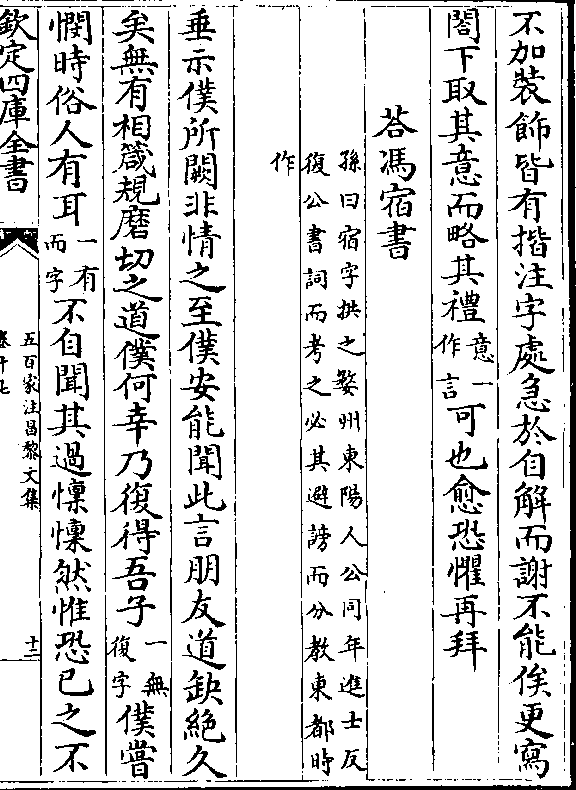 不加裝飾皆有揩注字處急於自解而謝不能俟更寫
閤下取其意而略其禮意一作言可也愈恐懼再拜
荅馮宿書
孫曰宿字拱之婺州東陽人公同年進士反
復公書詞而考之必其避謗而分教東都時
作
垂示僕所闕非情之至僕安能聞此言朋友道缺絶久
矣無有相箴規磨切之道僕何幸乃復得吾子一無復字僕嘗
憫時俗人有耳一有而字不自聞其過懍懍然惟恐已之不
欽定四庫全書
五百家注昌黎文集
卷十七
十二